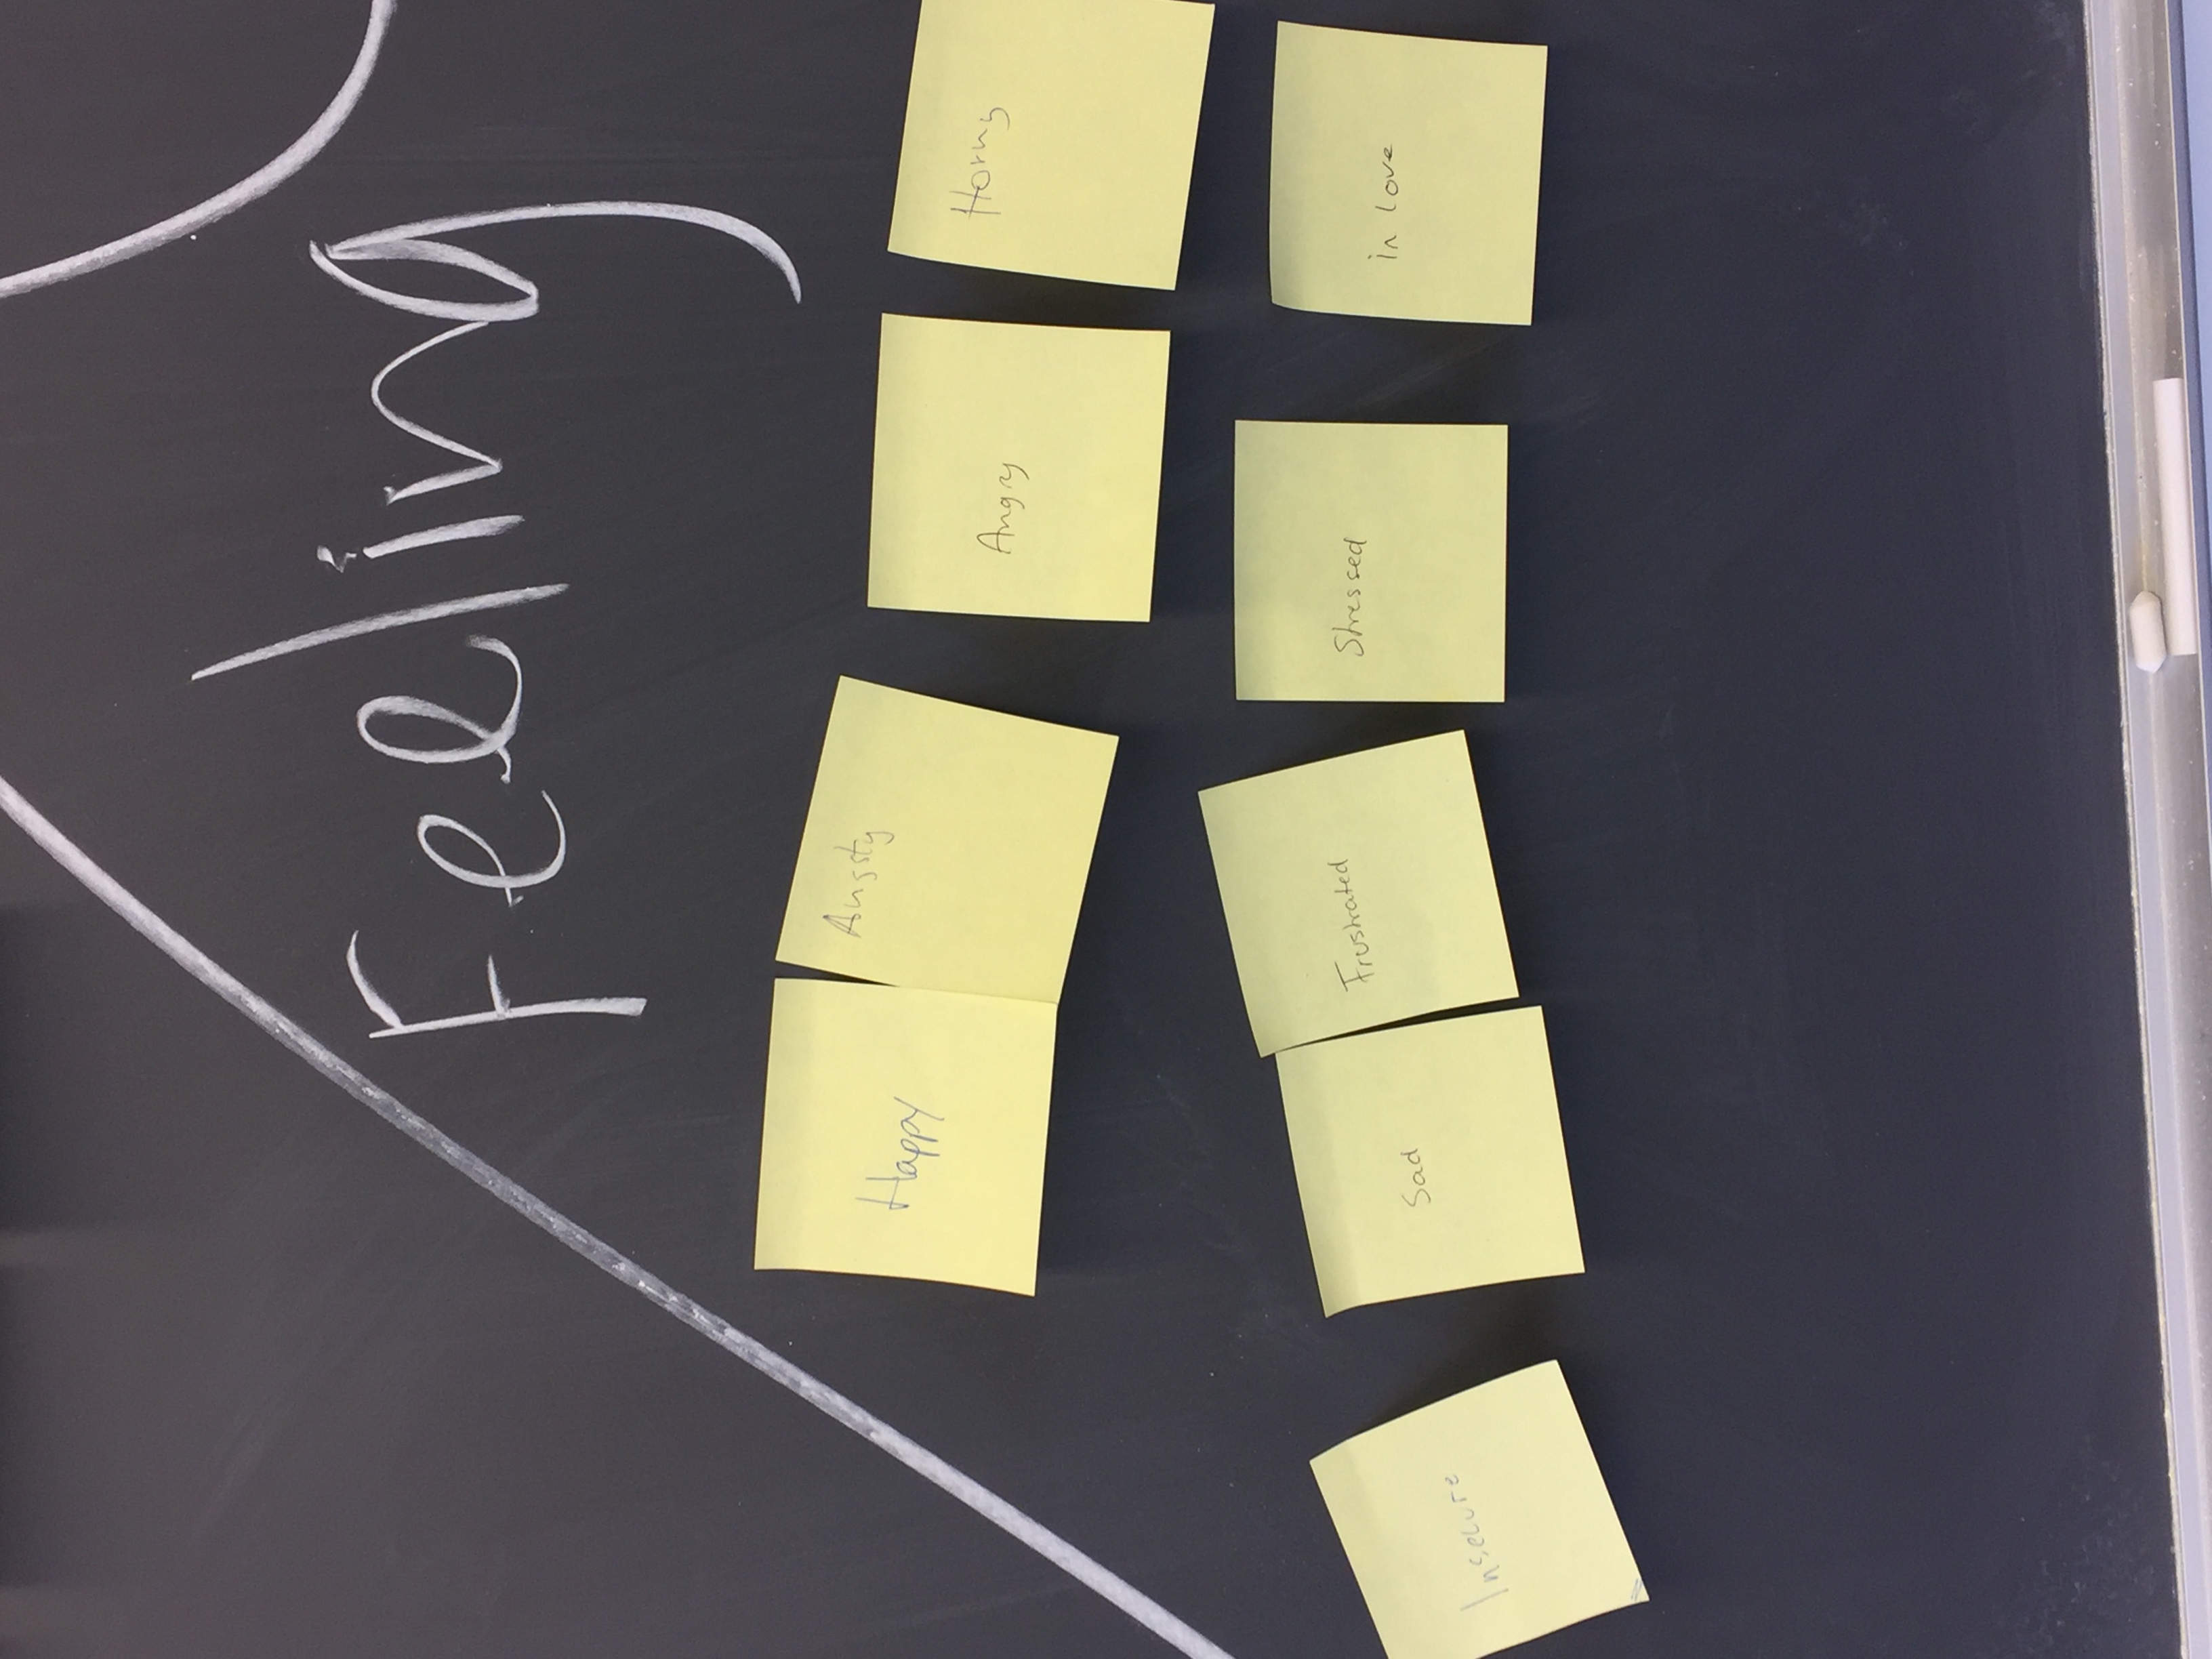 Feeling
Happy
Angsty
Angry
Horny
Insecure
Sad
Frustrated
Stressed
in love